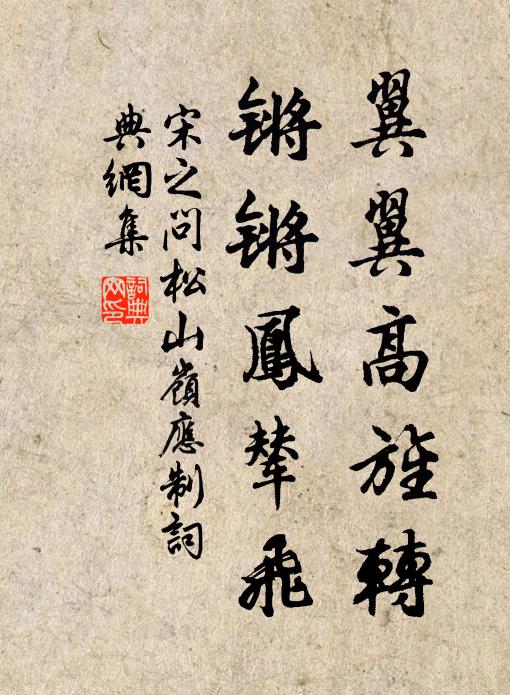 翼翼高旌轉
锵锵鳳輦飛
宋之问松山嶺應制詞
典網集
詞典网印